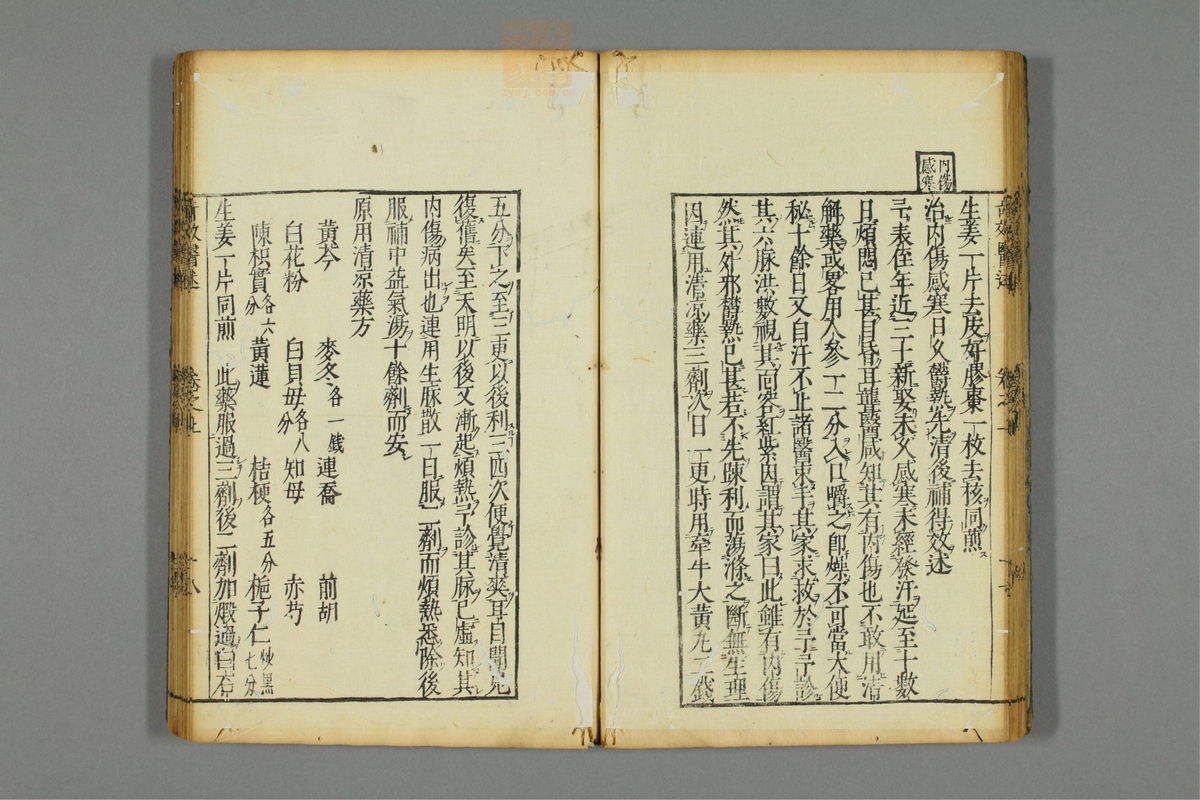 內傷
感寒
生姜一片去皮好膠棗一枚去核同煎
治內傷感寒日久欝熱先清後補得效述
予表侄年近三子新娶未久感寒未經發汗延至十數
日煩悶已甚目昏耳聾醫咸知其有內傷也不敢用清
解藥或畧用人參一二分入口嚼之卽燥不可當大便
秘十餘日又自汗不止諸醫束手其家求救於予予診
其六脉洪數視其面容紅紫因謂其家曰此雖有內傷
然其外邪欝熱已甚若不先踈利而蕩滌之斷無生理
因連用清凉藥三劑次日一更時用牽牛大黄丸二錢
五分下之至三更以後利三四次便覺清爽耳目聞見
復舊矣至天明以後又漸起煩熱予診其脉已虛知其
內傷病出也連用生脉散一日服二劑而煩熱悉除後
服補中益氣湯十餘劑而安
原用清凉藥方
黄芩 麥冬各一錢 連喬 前胡
白花粉 白貝母各八分 知母 赤芍
陳枳實各六分 黄蓮 桔梗各五分 梔子仁炒黑七分
生姜一片同煎 此藥服過三劑後二劑加煅過白石